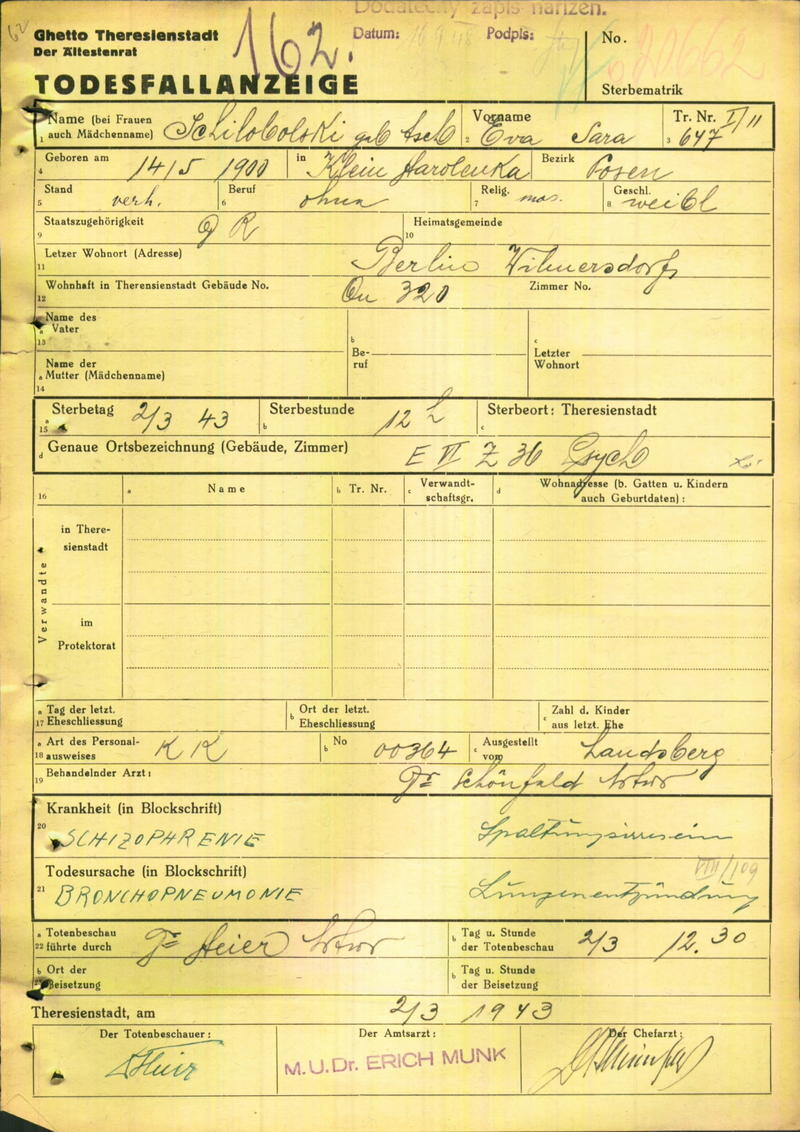 Dodatečný zápis nařízen.
Ghetto Theresienstadt
Der Ältestenrat
162.
Datum: Podpis:
No.
TODESFALLANZEIGE
Sterbematrik
Name (bei Frauen auch Mädchenname) Schilobolski geb Asch
Vorname Eva Sara
Tr. Nr. I/11 647
Geboren am 14/5 1900 in Klein Harolenka Bezirk Posen
Stand verh. Beruf ohne Relig. mos. Geschl. weibl
Staatszugehörigkeit D R Heimatsgemeinde
Letzer Wohnort (Adresse) Berlin Wilmersdorf
Wohnhaft in Theresienstadt Gebäude No. Qu 320 Zimmer No.
Name des Vater Beruf Letzter Wohnort
Name der Mutter (Mädchenname)
Sterbetag 2/3 43 Sterbestunde 12 h Sterbeort: Theresienstadt
Genaue Ortsbezeichnung (Gebäude, Zimmer) E VI Z 36 Psych
16 a Name b Tr. Nr. c Verwandtschaftsgr. d Wohnadresse (b. Gatten u. Kindern auch Geburtdaten) :
Verwandte
in Theresienstadt
im Protektorat
Tag der letzt. Eheschliessung Ort der letzt. Eheschliessung Zahl d. Kinder aus letzt. Ehe
Art des Personalausweises K K No 00364 Ausgestellt vom Landsberg
Behandelnder Arzt: Dr Schönfeld Artur
Krankheit (in Blockschrift)
SCHIZOPHRENIE Spaltungsirresein
Todesursache (in Blockschrift) VIII/109
BRONCHOPNEUMONIE Lungenentzündung
Totenbeschau führte durch Dr Heier Artur Tag u. Stunde der Totenbeschau 2/3 12.30
Ort der Beisetzung Tag u. Stunde der Beisetzung
Theresienstadt, am 2/3 1943
Der Totenbeschauer: Der Amtsarzt: Der Chefarzt:
M.U.Dr. ERICH MUNK